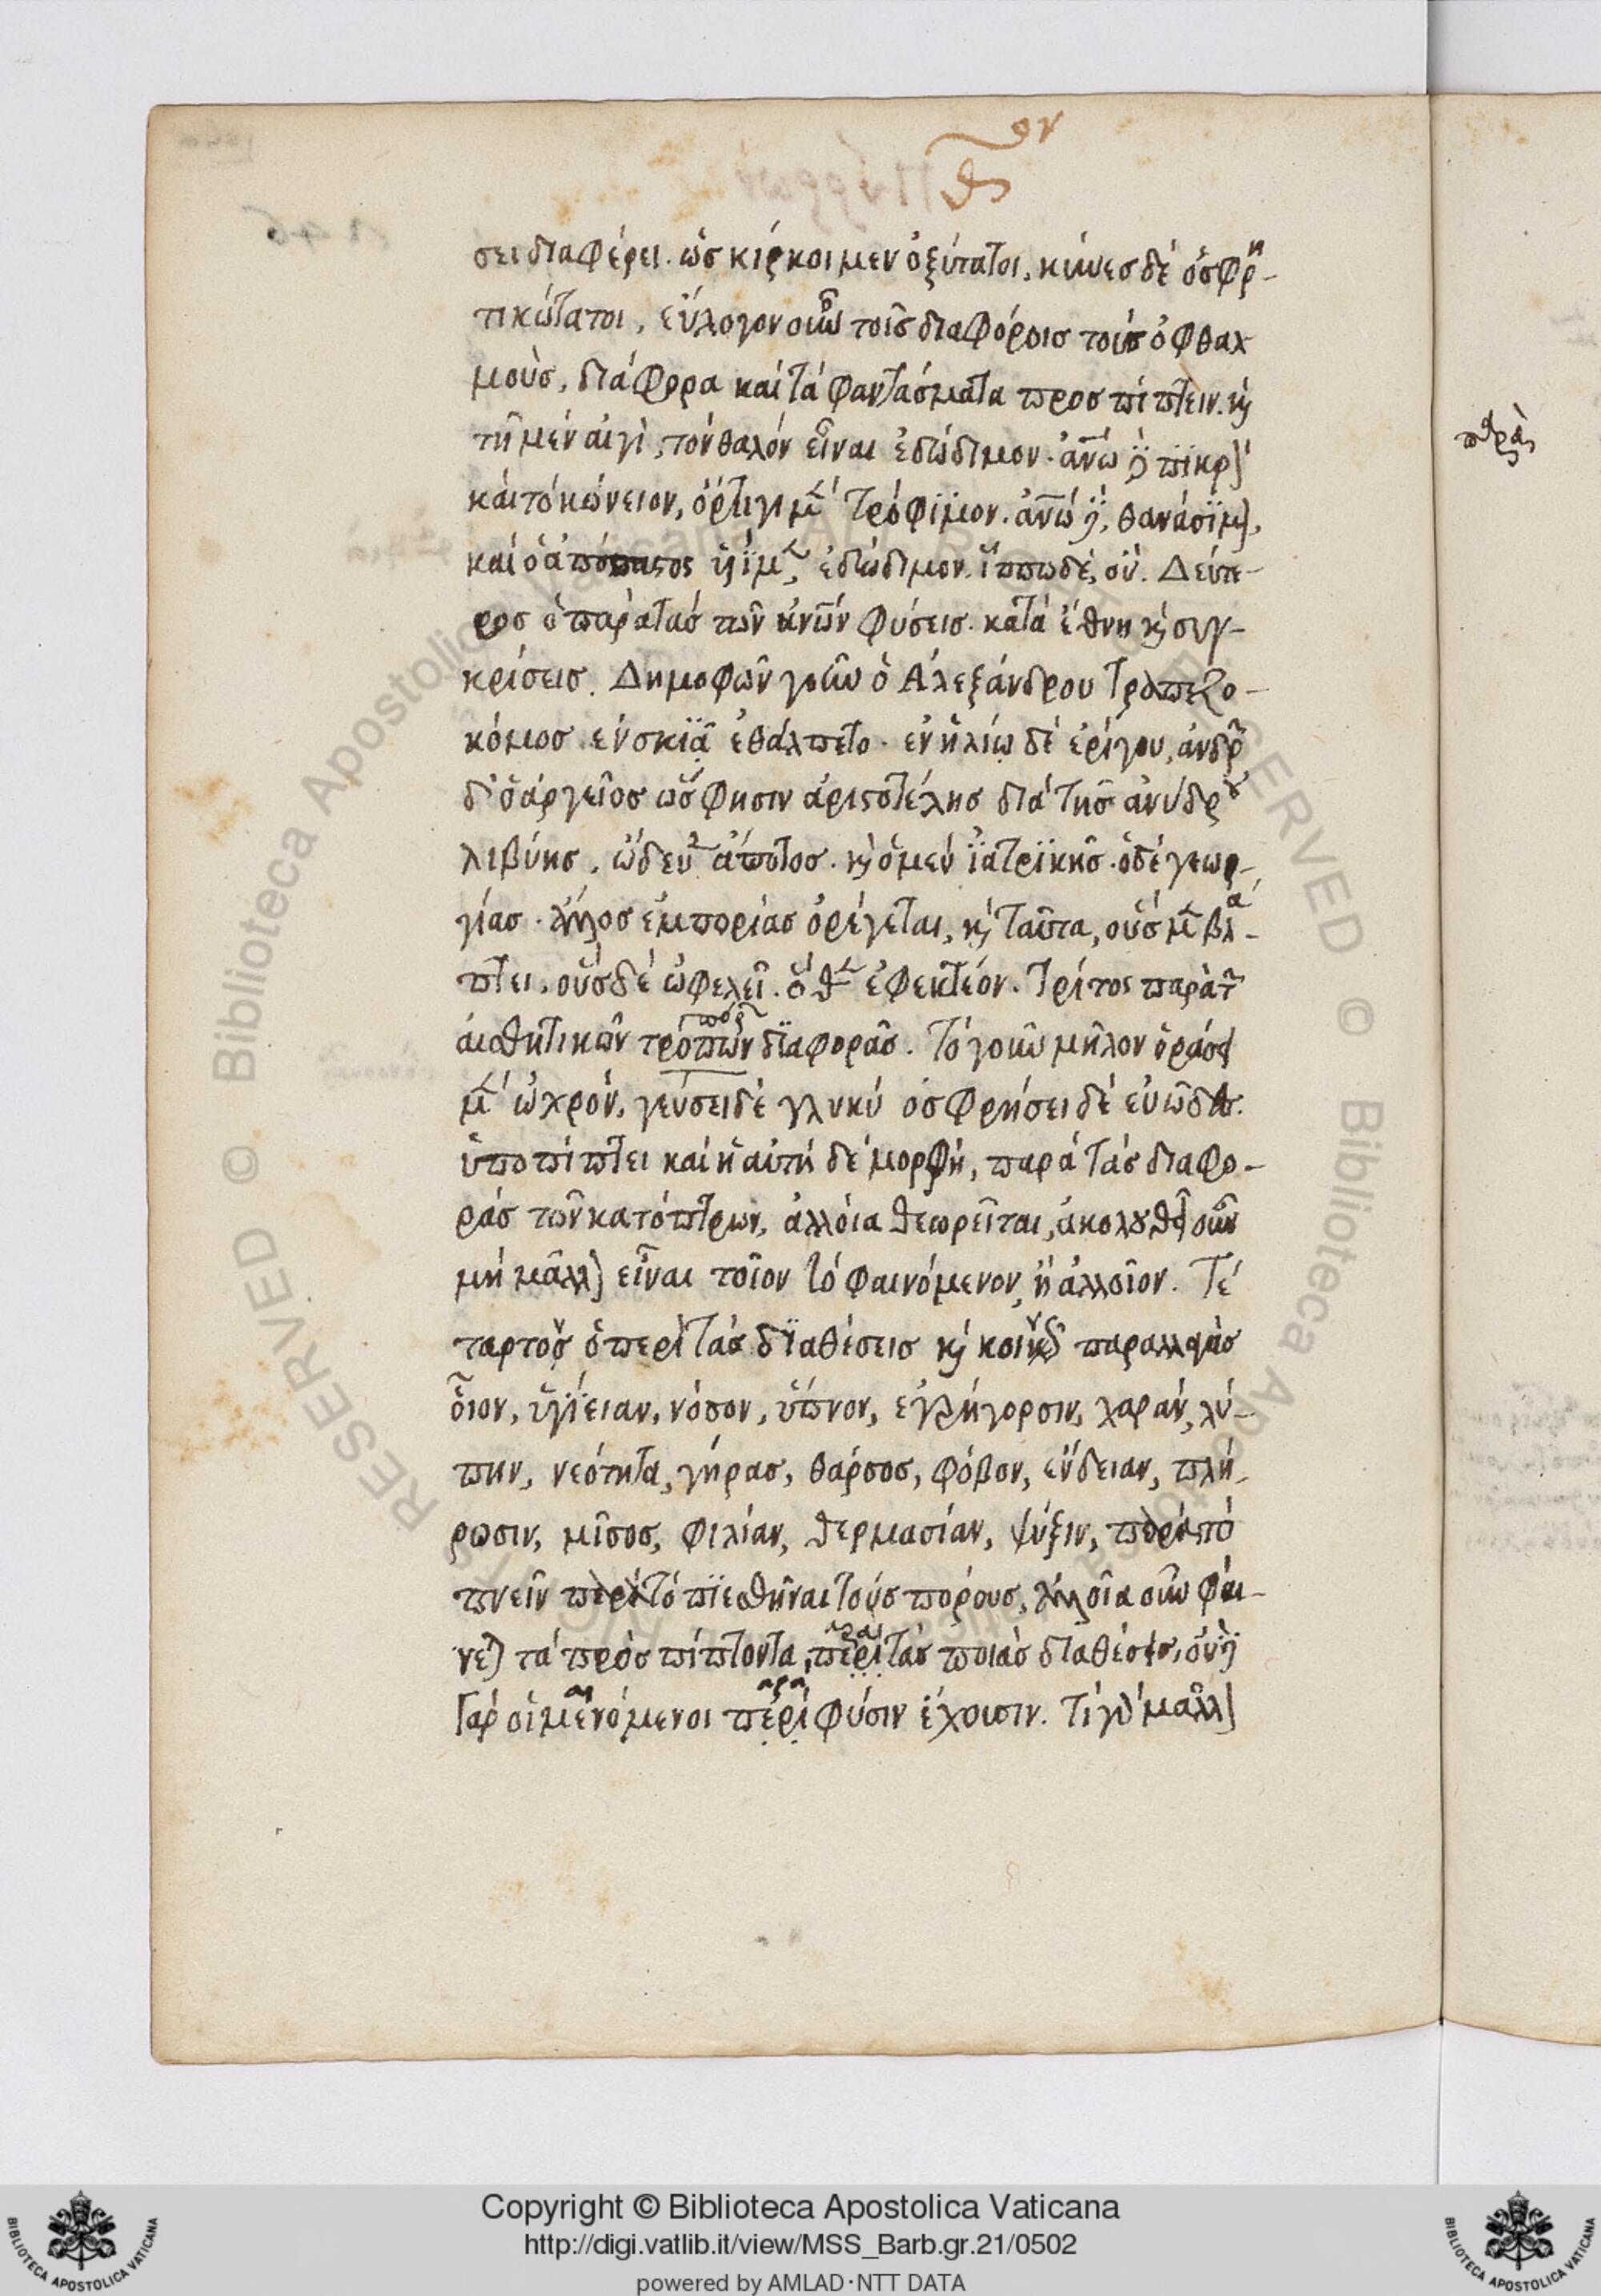 θον
σει διαφέρει. ὡς κίρκοι μεν ὀξύτατοι, κύνες δέ ὀσφρη-
τικώτατοι, εὔλογον οὖν τοῖς διαφόροις τούς ὀφθαλ
μοὺς, διάφορα καί τά φαντάσματα προσπίπτειν. κ
τῇ μέν αἰγὶ, τόν θαλόν εἶναι ἐδώδιμον. ἀνω δέ πϊκρ
καί τό κώνειον, ὄρτιγι μ τρόφϊμον. ἀνω δέ, θανάσϊμ,
καί ὁ ἀπόπατος ὑϊ μ, ἐδώδιμον. ἵππω δέ, οὔ. Δεύτε-
ρος ὁ παρὰ τάς τῶν ἀνων φύσεις. κατά ἔθνη κ συγ-
κρίσεις. Δημοφῶν γοῦν ὁ Ἀλεξάνδρου τραπεζο-
κόμος ἐν σκϊᾷ ἐθάλπετο. ἐν ἡλίῳ δέ ἐρίγου, ἀνδρ
δ' ὁ ἀργεῖος ὥς φησιν ἀριστοτέλης διά τῆς ἀνύδρου
λιβύης, ὥδευ ἄποτος. κ ὁ μέν ἰατρϊκῆς. ὁ δέ γεωρ-
γίας. ἄλλος ἐμπορίας ὀρέγεται, κ ταῦτα, οὕς μ βλά-
πτει, οὕς δέ ὠφελεῖ. ὅθ ἐφεκτέον. Τρίτος παρὰ τ
αἰσθητικῶν τρόπων πόρων διαφορᾶς. τό γοῦν μῆλον ὁράσει
μ ὠχρόν, γεύσει δέ γλυκύ ὀσφρήσει δέ εὐῶδες.
ὑποπίπτει καί ἡ αὐτή δέ μορφή, παρά τάς διαφο-
ράς τῶν κατόπτρων, ἀλλοία θεωρεῖται, ἀκολουθεῖ οὖν
μή μᾶλλ εἶναι τοῖον τό φαινόμενον, ἤ ἀλλοῖον. Τέ
ταρτος ὁ περὶ τάς διαθέσεις κ κοινῶς παραλλαγάς
οἷον, ὑγϊείαν, νόσον, ὕπνον, ἐγρήγορσιν, χαράν, λύ-
πην, νεότητα, γήρας, θάρσος, φόβον, ἔνδειαν, πλή-
ρωσιν, μῖσος, φιλίαν, θερμασίαν, ψύξιν, περὶ τό
πνεῖν περὶ τό πϊεσθῆναι τούς πόρους, ἀλλοῖα οὖν φαί-
νε τά πρόσπίπτοντα, περὶ τάς ποιάς διαθέσεις, οὐδέ
γάρ οἱ μενόμενοι περὶ φύσιν ἔχουσιν. Τί γ μᾶλλ
Copyright © Biblioteca Apostolica Vaticana
http://digi.vatlib.it/view/MSS_Barb.gr.21/0502
powered by AMLAD·NTT DATA